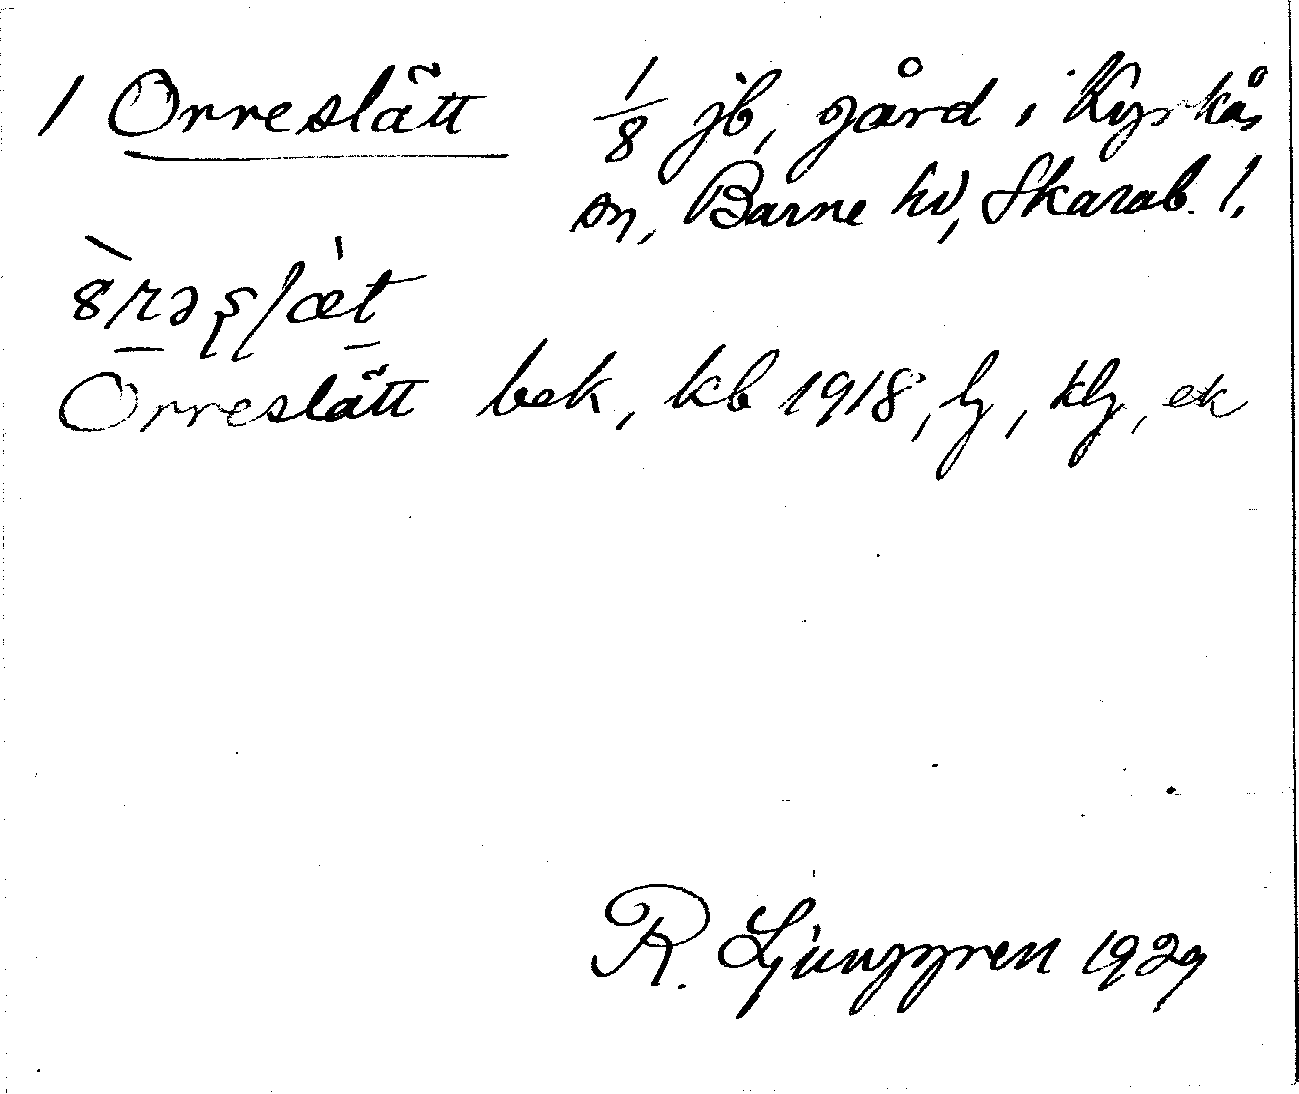 1 Orreslätt 1/8 jb, gård i Kyrkås
sn, Barne hd, Skarab. l.
Orreslätt bek, kb 1918, lg, klg, ek
R. Ljunggren 1929